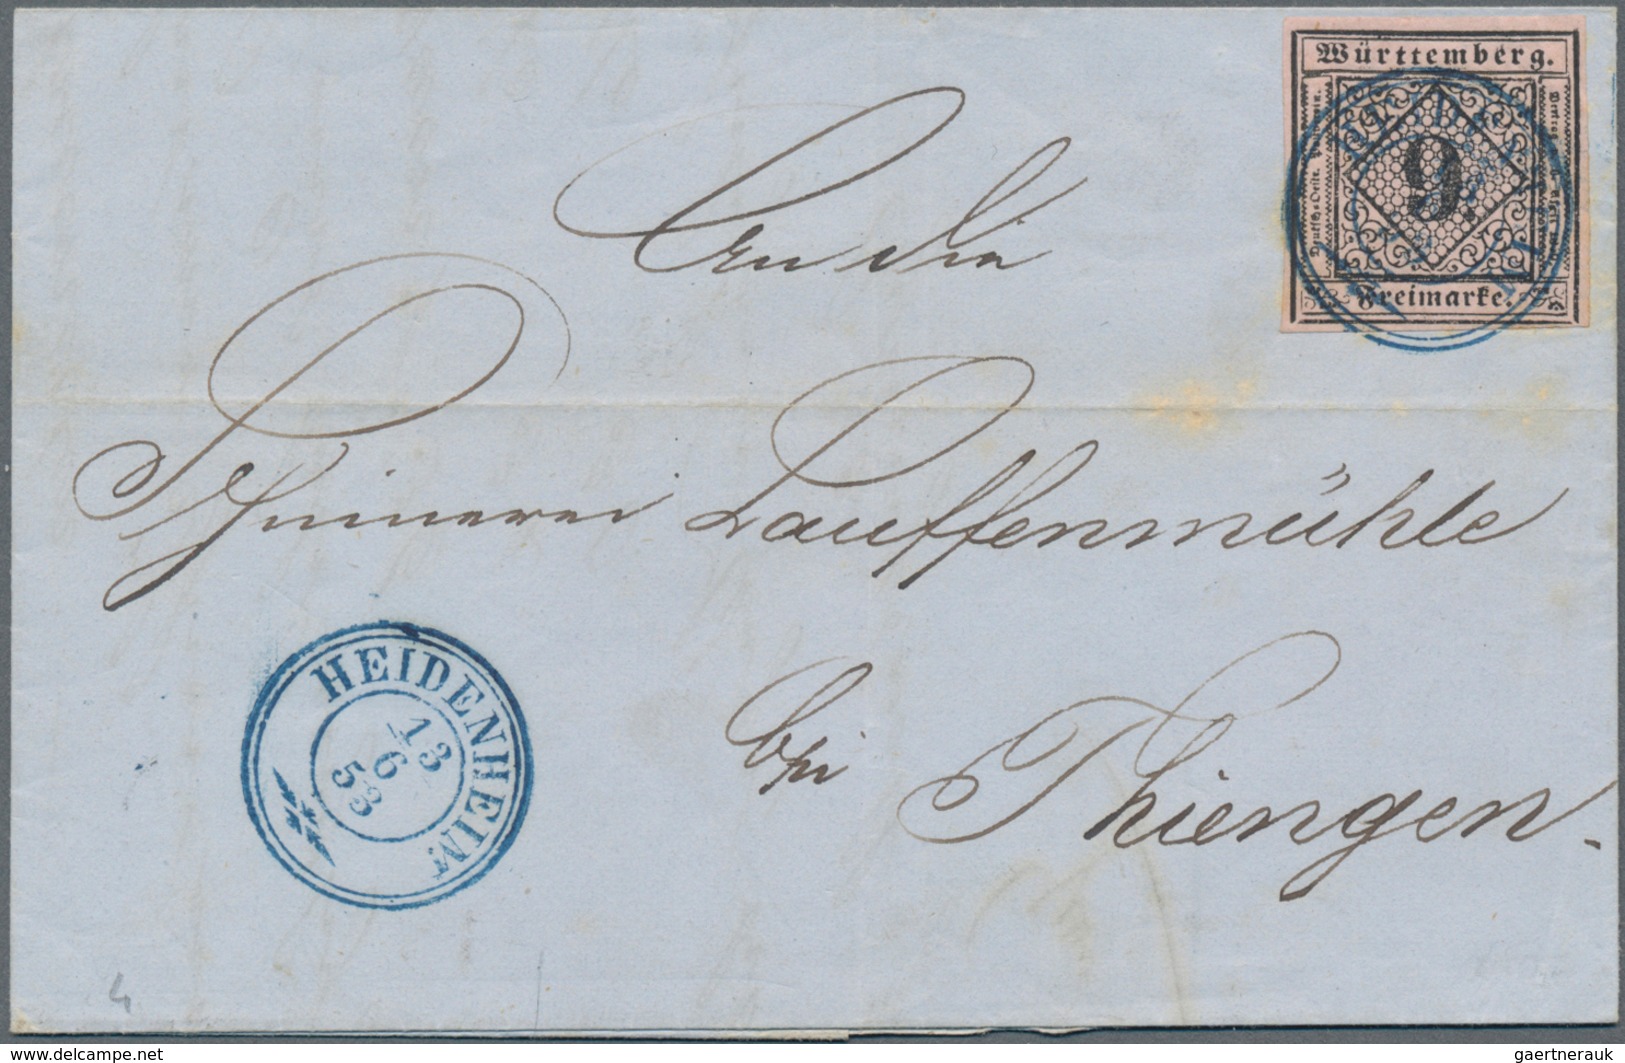 Württemberg.
9
Freimarke.
An die
Spinnerei Lauffenmühle
bei Thiengen.
HEIDENHEIM
13
6
53
4
www.delcampe.net
gaertnerauk